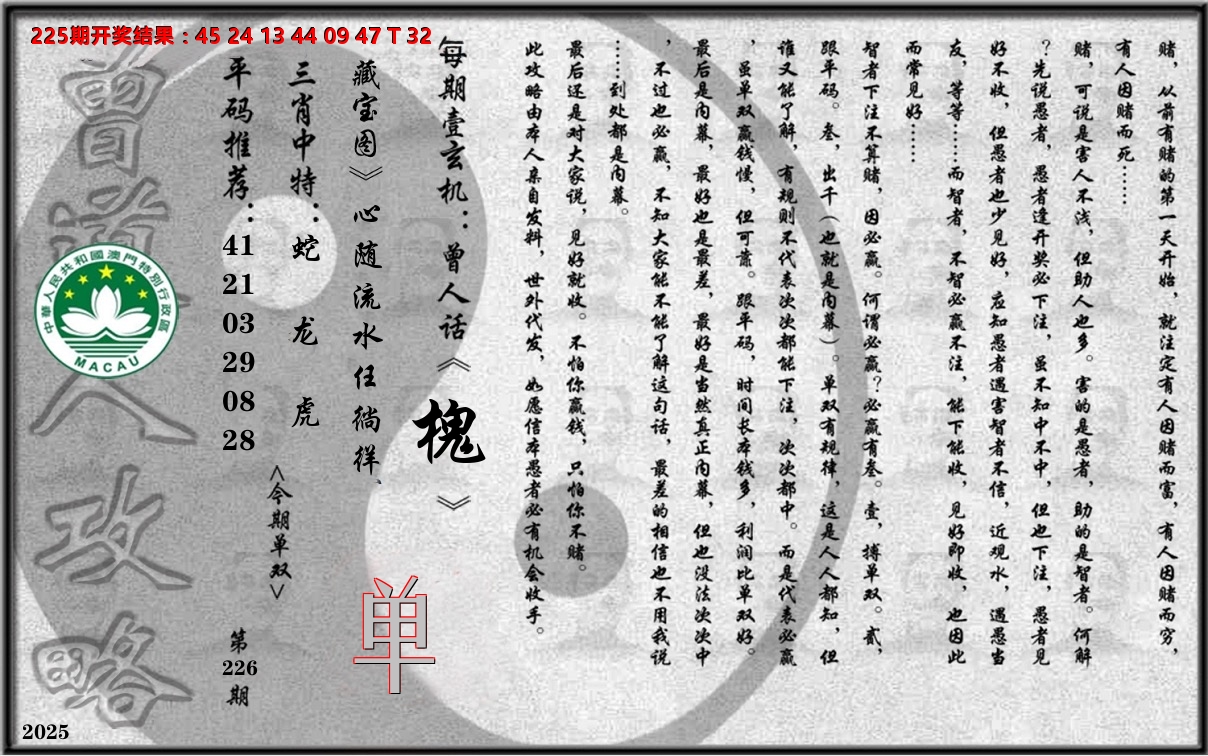 225期开奖结果：45 24 13 44 09 47 T 32
赌，从前有赌的第一天开始，就注定有人因赌而富，有人因赌而穷，
有人因赌而死……
赌，可说是害人不浅，但助人也多。害的是愚者，助的是智者。何解
？先说愚者，愚者逢开奖必下注，虽不知中不中，但也下注，愚者见
好不收，但愚者也少见好，应知愚者遇害智者不信，近观水，遇愚当
友，等等……而智者，不智必赢不注，能下能收，见好即收，也因此
而常见好……
智者下注不算赌，因必赢。何谓必赢？必赢有叁。壹，搏单双。贰，
跟平码。叁，出千（也就是内幕）。单双有规律，这是人人都知，但
谁又能了解，有规则不代表次次都能下注，次次都中。而是代表必赢
，虽单双赢钱慢，但可靠。跟平码，时间长本钱多，利润比单双好。
最后是内幕，最好也是最差，最好是当然真正内幕，但也没法次次中
，不过也必赢，不知大家能不能了解这句话，最差的相信也不用我说
……到处都是内幕。
最后还是对大家说，见好就收。不怕你赢钱，只怕你不赌。
此攻略由本人亲自发料，世外代发，如愿信本愚者必有机会收手。
每期壹玄机：曾人话《槐》
藏宝图》心随流水任徜徉、
三肖中特：蛇 龙 虎
<今期单双>
单
平码推荐：41 21 03 29 08 28
第226期
曾道人攻略
中華人民共和國澳門特別行政區
MACAU
2025